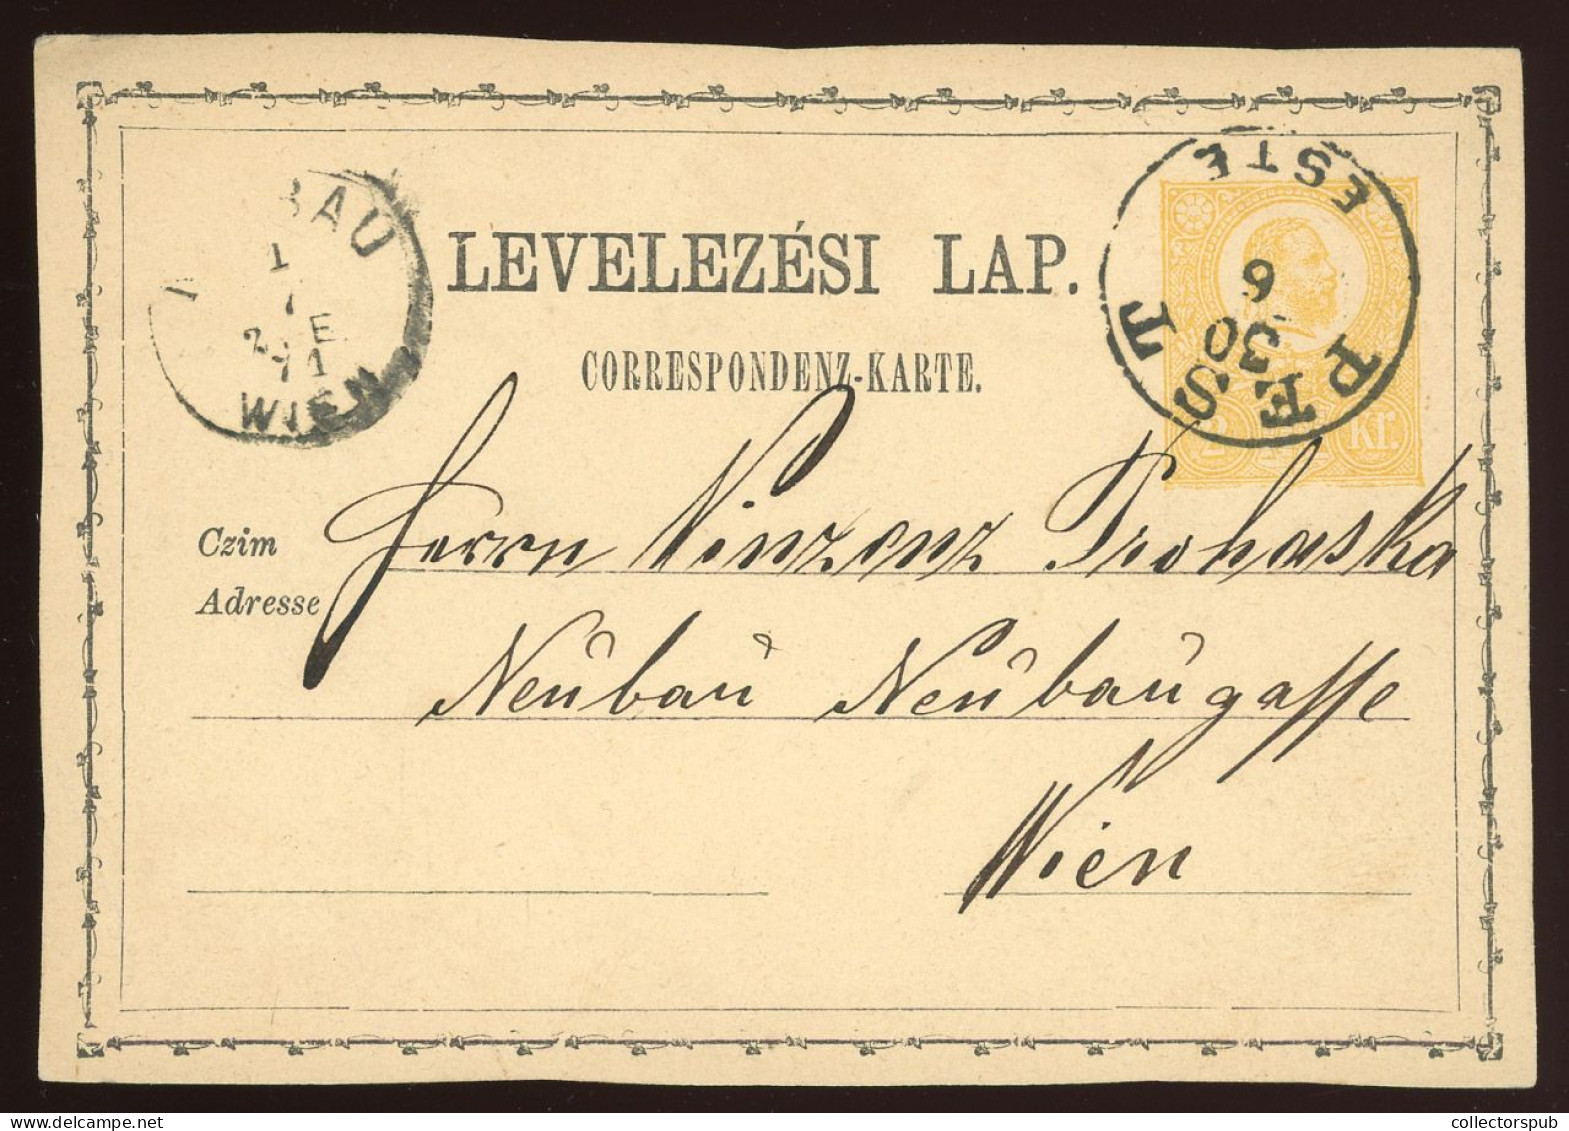 LEVELEZÉSI LAP.
CORRESPONDENZ-KARTE.
BAU
1
7
2 E
71
WIEN
ESTE
6
30
PEST
2 kr.
Czim
Adresse
Herrn Vinzenz Prohaska
Neubau Neubaugasse
Wien
collectorspub